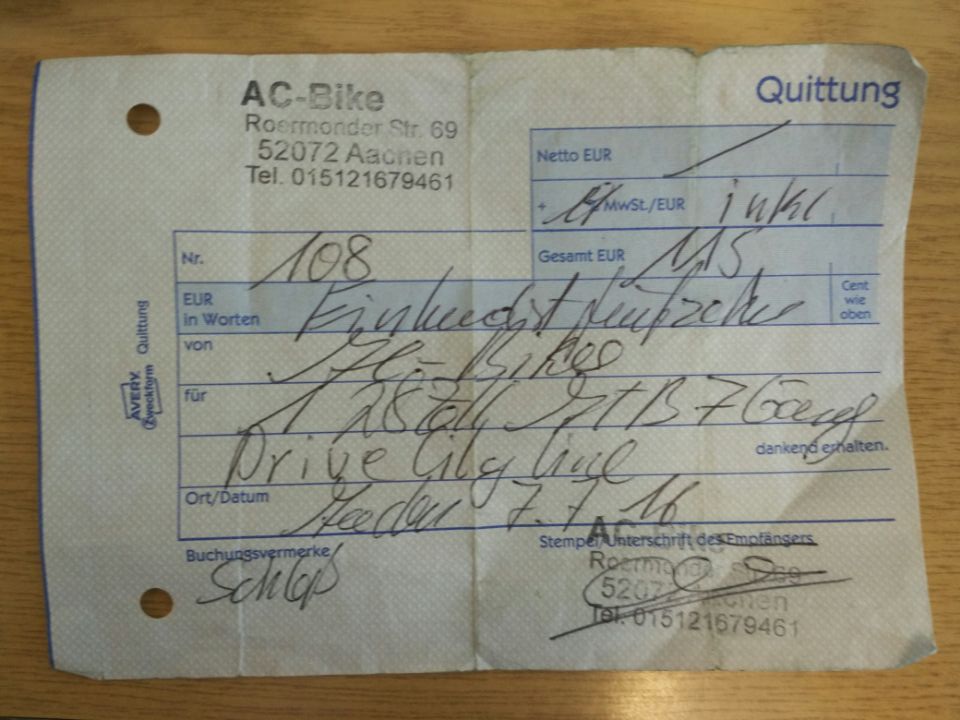 AC-Bike
Roermonder Str. 69
52072 Aachen
Tel. 015121679461
Quittung
Netto EUR
+ MwSt./EUR inkl
Nr. 108
Gesamt EUR 115
EUR
in Worten
Cent
wie
oben
von AC-Bike
für 1 28 Zoll MTB 7 Gang
Drive City Line
dankend erhalten.
Ort/Datum Aachen 7.7 16
Buchungsvermerke
Stempel/Unterschrift des Empfängers
Schloß
AC-Bike
Roermonder Str. 69
52072 Aachen
Tel. 015121679461
AVERY
Zweckform
Quittung